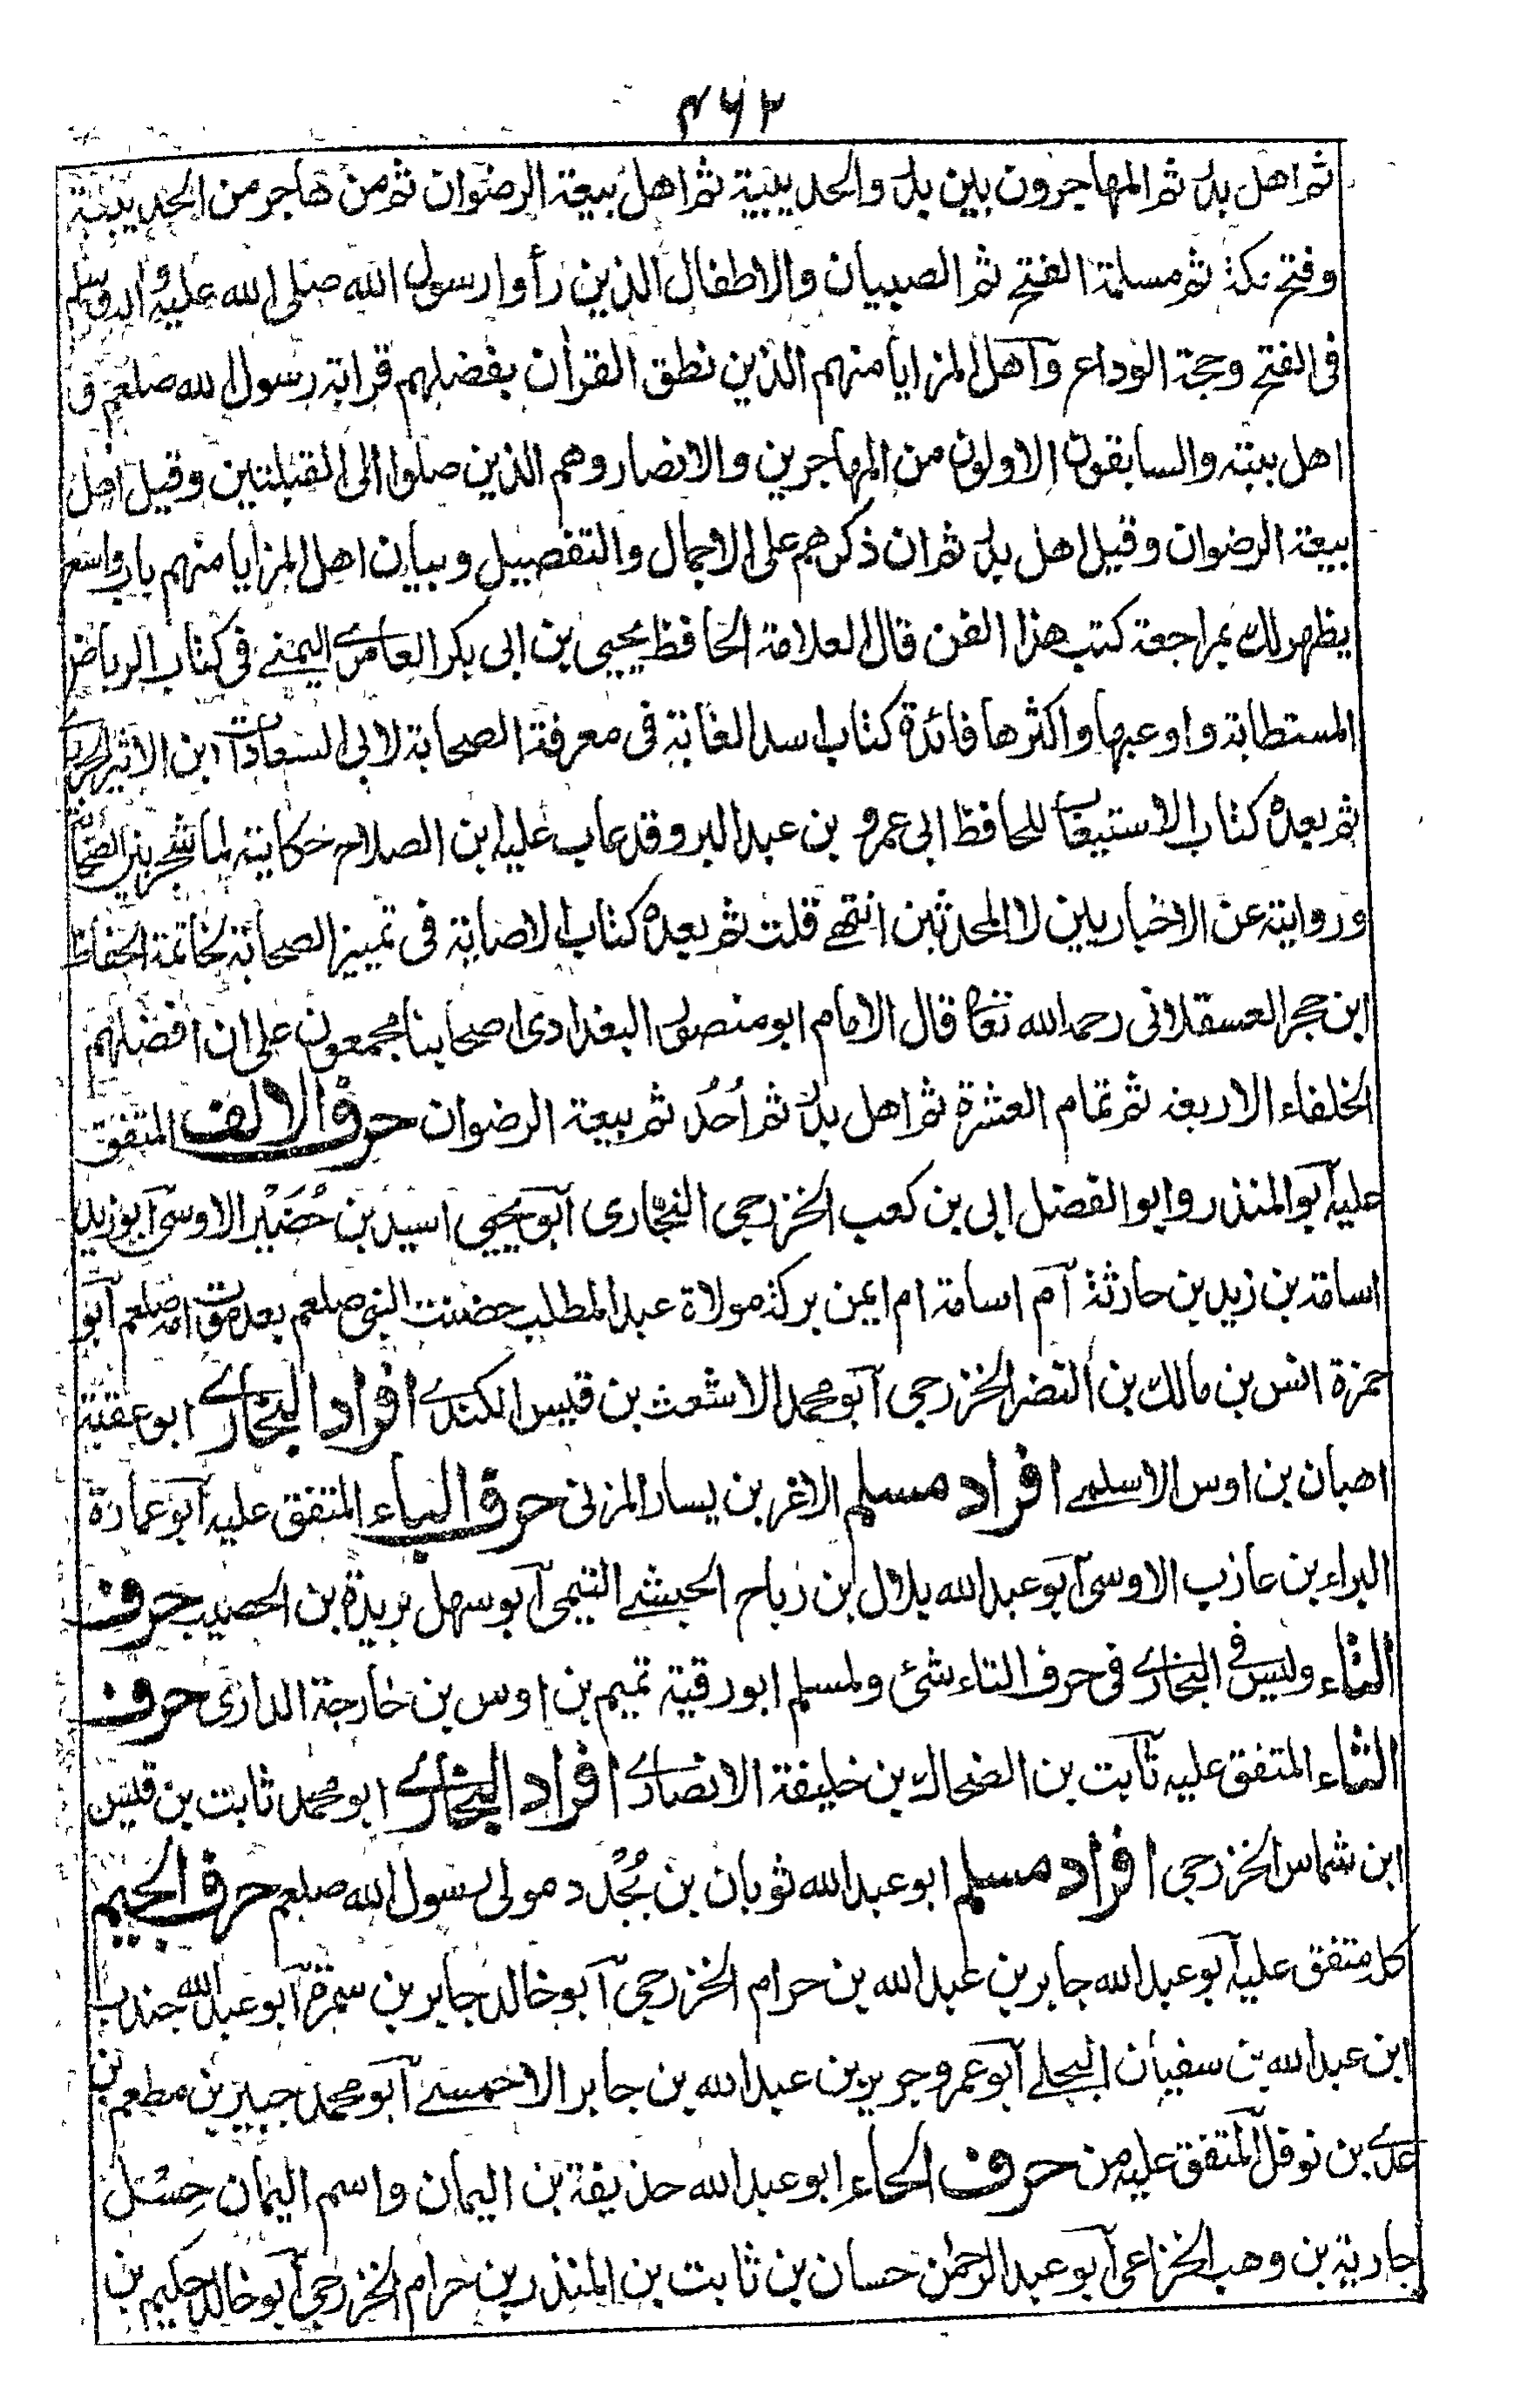 ۴۶۲
ثم اهل بدر ثم المهاجرون بين بدر والحديبية ثم اهل بيعة الرضوان ثم من هاجر من الحديبية
وفتح مكة ثم مسلمة الفتح ثم الصبيان والاطفال الذين رأوا رسول الله صلى الله عليه واله وسلم
فى الفتح وحجة الوداع وآهل المزايا منهم الذين نطق القرأن بفضلهم قرابة رسول الله صلعم فى
اهل بيته والسابقون الاولون من المهاجرين والانصار وهم الذين صلوا الى القبلتين وقيل اهل
بيعة الرضوان وقيل اهل بدر ثم ان ذكرهم على الاجمال والتفصيل وبيان اهل المزايا منهم باب واسع
يظهر لك بمراجعة كتب هذا الفن قال العلامة الحافظ يحيى بن ابى بكر العامرى اليمنے فى كتاب الرياض
المستطابة واوعبها واكثرها فائدة كتاب اسد الغابة فى معرفة الصحابة لابى السعادات ابن الاثير الجزرى
ثم بعده كتاب الاستيعاب للحافظ ابى عمرو بن عبد البر وقد عاب عليه ابن الصلاح حكايته لما شجر بين الصحابة
وروايته عن الاخباريين لا المحدثين انتهے قلت ثم بعده كتاب الاصابة فى تمييز الصحابة لخاتمة الحفاظ
ابن حجر العسقلانى رحمه الله تعا قال الامام ابو منصور البغدادى اصحابنا مجمعون على ان افضلهم
الخلفاء الاربعة ثم تمام العشرة ثم اهل بدر ثم اُحُد ثم بيعة الرضوان حرف الالف المتفق
عليه آبو المنذر وابو الفضل ابى بن كعب الخزرجى النجّارى آبو يحيى اسيد بن حُضَيْر الاوسى آبو زيد
اسامة بن زيد بن حارثة آم اسامة ام ايمن بركة مولاة عبد المطلب حضنت النبى صلعم بعد موت امه صلعم آبو
حمزة انس بن مالك بن النضر الخزرجى آبو محمد الاشعث بن قيس الكندے افراد البخارے ابو عقبة
اهبان بن اوس الاسلمے افراد مسلم الاغر بن يسار المزنى حرف الباء المتفق عليه آبو عمارة
البراء بن عازب الاوسى آبو عبد الله بلال بن رباح الحبشے التيمى آبو سهل بريدة بن الحصيب حرف
التاء وليس فى البخارے فى حرف التاء شئ ولمسلم ابو رقية تميم بن اوس بن خارجة الدارى حرف
الثاء المتفق عليه ثآبت بن الضحاك بن خليفة الانصارے افراد البخارے ابو محمد ثابت بن قيس
ابن شماس الخزرجى افراد مسلم ابو عبد الله ثوبان بن بُجْدد مولى رسول الله صلعم حرف الجيم
كله متفق عليه آبو عبد الله جابر بن عبد الله بن حرام الخزرجى آبو خالد جابر بن سمرة آبو عبد الله جندب
ابن عبد الله بن سفيان البجلے آبو عمرو جرير بن عبد الله بن جابر الاحمسے آبو محمد جبير بن مطعم بن
عدے بن نوفل آلمتفق عليه من حرف الحاء ابو عبد الله حذيفة بن اليمان واسم اليمان حِسْل
جارية بن وهب الخزاعى آبو عبد الرحمٰن حسان بن ثابت بن المنذر بن حرام الخزرجى آبو خالد حكيم بن